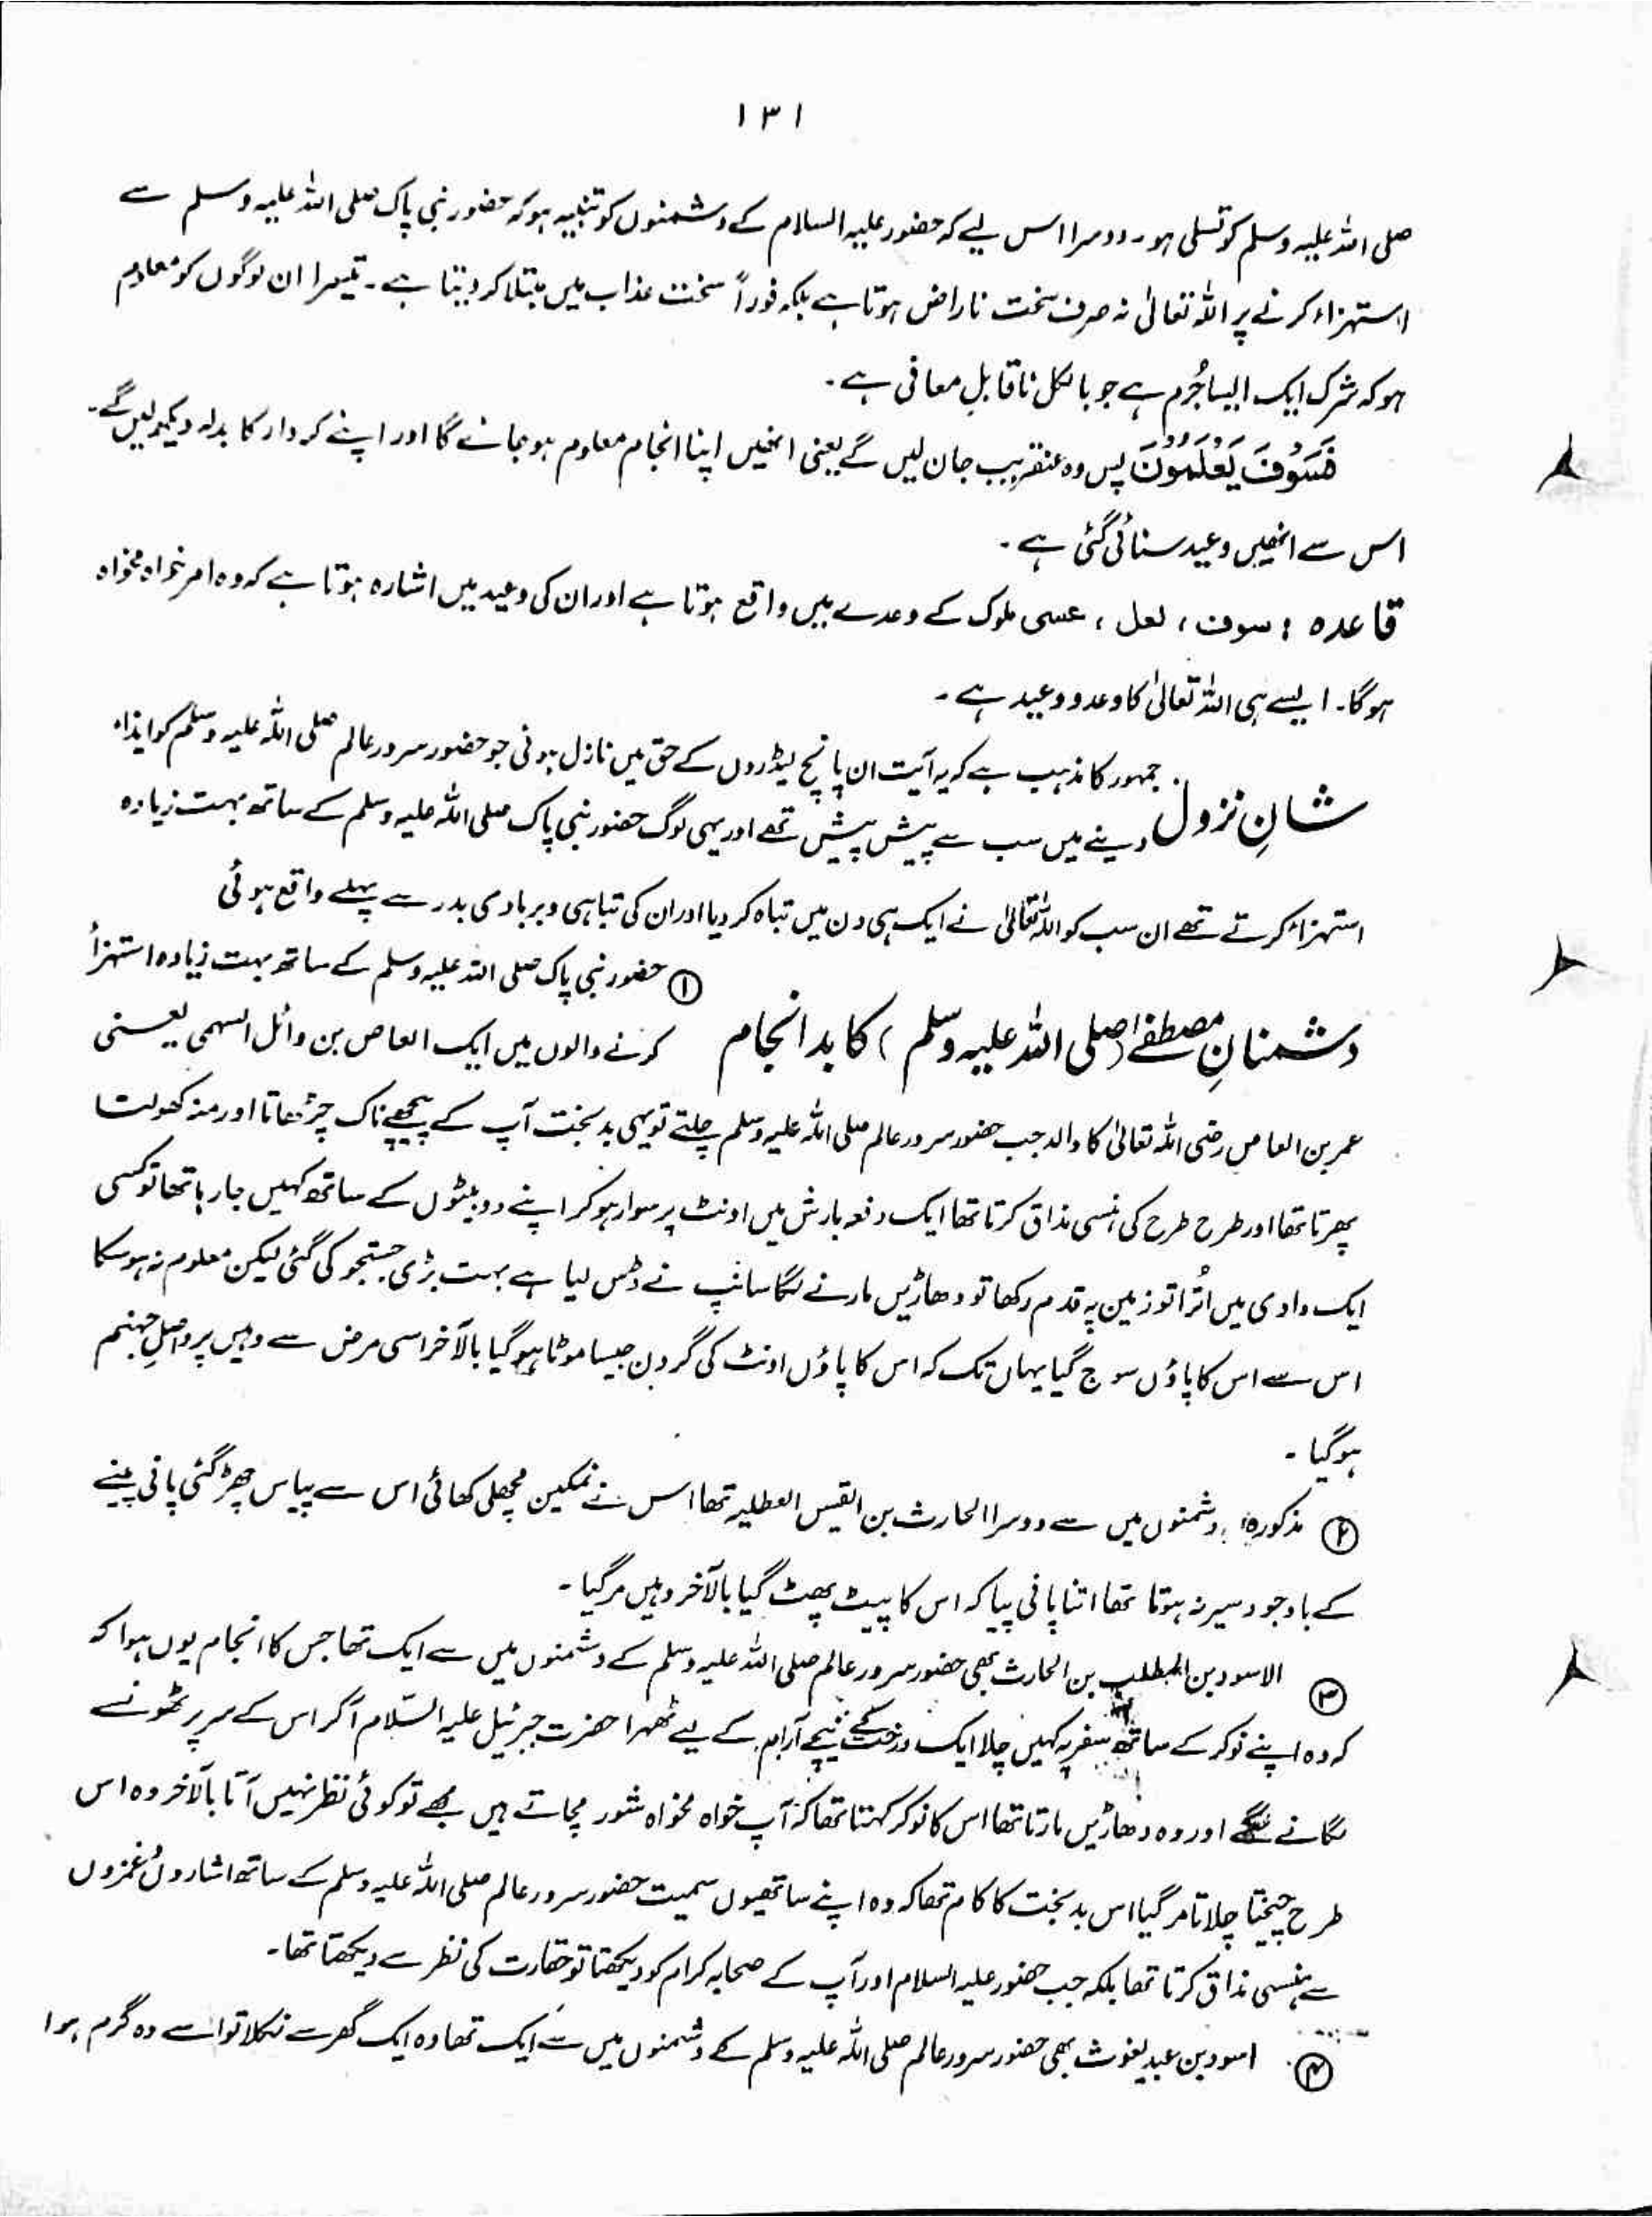 ۱۳۱
صلی اللہ علیہ وسلم کو تسلی ہو۔ دوسرا اس لیے کہ حضور علیہ السلام کے دشمنوں کو تنبیہ ہو کہ حضور نبی پاک صلی اللہ علیہ وسلم سے
استہزاء کرنے پر اللہ تعالیٰ نہ صرف سخت ناراض ہوتا ہے بلکہ فوراً سخت عذاب میں مبتلا کر دیتا ہے۔ تیسرا ان لوگوں کو معلوم
ہو کہ شرک ایک ایسا جُرم ہے جو بالکل ناقابلِ معافی ہے۔
فَسَوْفَ يَعْلَمُوْنَ پس وہ عنقریب جان لیں گے یعنی انھیں اپنا انجام معلوم ہو جائے گا اور اپنے کردار کا بدلہ دیکھ لیں گے۔
اس سے انھیں وعید سنائی گئی ہے۔
قاعدہ : سوف ، لعل ، عسی ملوک کے وعدے میں واقع ہوتا ہے اور ان کی وعید میں اشارہ ہوتا ہے کہ وہ امر خواہ مخواہ
ہوگا۔ ایسے ہی اللہ تعالیٰ کا وعدو وعید ہے۔
شانِ نزول جمہور کا مذہب ہے کہ یہ آیت ان پانچ لیڈروں کے حق میں نازل ہوئی جو حضور سرور عالم صلی اللہ علیہ وسلم کو ایذاء
دینے میں سب سے پیش پیش تھے اور یہی لوگ حضور نبی پاک صلی اللہ علیہ وسلم کے ساتھ بہت زیادہ
استہزاء کرتے تھے ان سب کو اللہ تعالیٰ نے ایک ہی دن میں تباہ کر دیا اور ان کی تباہی و بربادی بدر سے پہلے واقع ہوئی
دشمنانِ مصطفےٰ (صلی اللہ علیہ وسلم) کا بد انجام ① حضور نبی پاک صلی اللہ علیہ وسلم کے ساتھ بہت زیادہ استہزأ
کرنے والوں میں ایک العاص بن وائل السہمی یعنی
عمر بن العاص رضی اللہ تعالیٰ کا والد جب حضور سرور عالم صلی اللہ علیہ وسلم چلتے تو یہی بدبخت آپ کے پیچھے ناک چڑھاتا اور منہ کھولتا
پھرتا تھا اور طرح طرح کی ہنسی مذاق کرتا تھا ایک دفعہ بارش میں اونٹ پر سوار ہو کر اپنے دو بیٹوں کے ساتھ کہیں جا رہا تھا تو کسی
ایک وادی میں اُترا تو زمین پہ قدم رکھا تو دھاڑیں مارنے لگا سانپ نے ڈس لیا ہے بہت بڑی جستجو کی گئی لیکن معلوم نہ ہو سکا
اس سے اس کا پاؤں سوج گیا یہاں تک کہ اس کا پاؤں اونٹ کی گردن جیسا موٹا ہو گیا بالآخر اسی مرض سے وہیں پر واصلِ جہنم
ہو گیا۔
② مذکورہ دشمنوں میں سے دوسرا الحارث بن القیس العطلیہ تھا اس نے نمکین مچھلی کھائی اس سے پیاس چھڑ گئی پانی پینے
کے باوجود سیر نہ ہوتا تھا اتنا پانی پیا کہ اس کا پیٹ پھٹ گیا بالآخر وہیں مر گیا۔
③ الاسود بن المطلب بن الحارث بھی حضور سرور عالم صلی اللہ علیہ وسلم کے دشمنوں میں سے ایک تھا جس کا انجام یوں ہوا کہ
کہ وہ اپنے نوکر کے ساتھ سفر پہ کہیں چلا ایک درخت کے نیچے آرام کے لیے ٹھہرا حضرت جبرئیل علیہ السّلام آکر اس کے سر پر ٹھونسے
لگانے لگے اور وہ دھاڑیں مارتا تھا اس کا نوکر کہتا تھا کہ آپ خواہ مخواہ شور مچاتے ہیں مجھے تو کوئی نظر نہیں آتا بالآخر وہ اس
طرح چیختا چلاتا مر گیا اس بدبخت کا کام تھا کہ وہ اپنے ساتھیوں سمیت حضور سرور عالم صلی اللہ علیہ وسلم کے ساتھ اشاروں غمزوں
سے ہنسی مذاق کرتا تھا بلکہ جب حضور علیہ السلام اور آپ کے صحابہ کرام کو دیکھتا تو حقارت کی نظر سے دیکھتا تھا۔
④ اسود بن عبد یغوث بھی حضور سرور عالم صلی اللہ علیہ وسلم کے دشمنوں میں سے ایک تھا وہ ایک گھر سے نکلا تو اسے وہ گرم ہوا